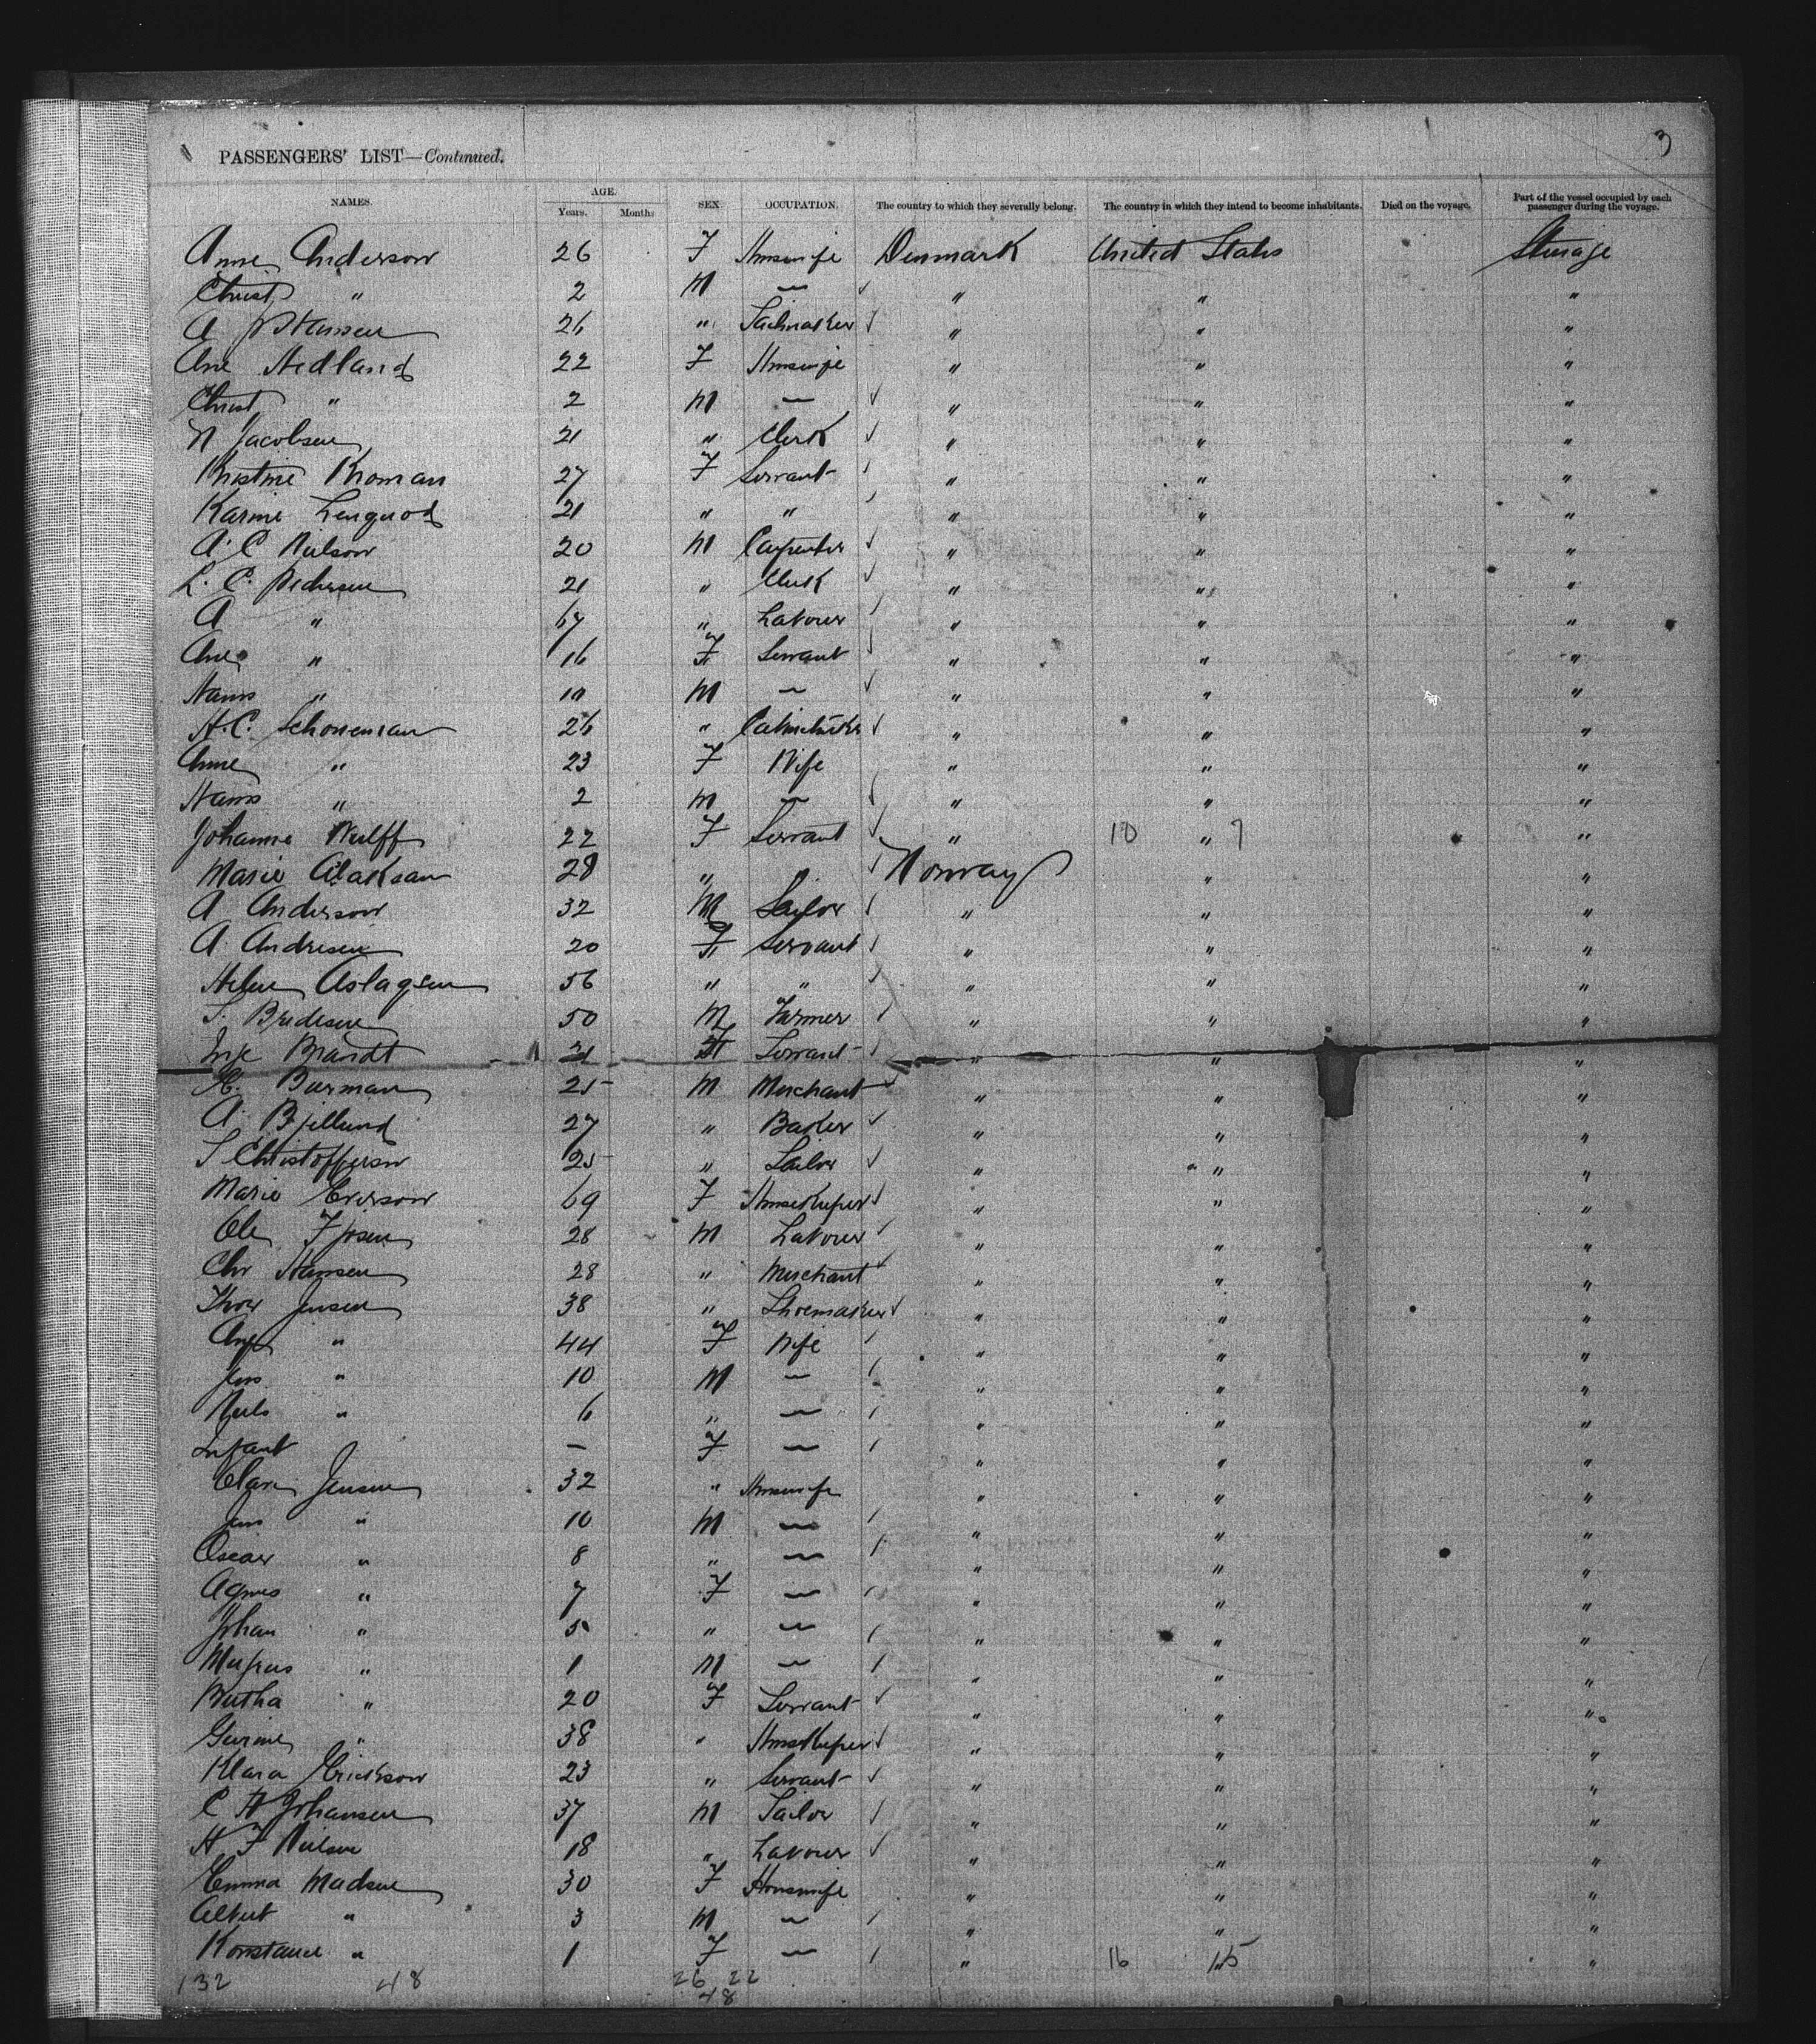 3
PASSENGERS' LIST—Continued.
NAMES. AGE. Years. Months SEX OCCUPATION. The country to which they severally belong. The country in which they intend to become inhabitants. Died on the voyage. Part of the vessel occupied by each passenger during the voyage.
Anne Anderson 26 F Housewife Denmark United States Steerage
Christ " 2 M — " " "
A P Hansen 26 " Sailmaker " " "
Ane Hedland 22 F Housewife " " "
Christ " 2 M — " " "
N Jacobsen 21 " Clerk " " "
Kristine Kroman 27 F Servant " " "
Karine 21 " " " " "
A. C. Nielson 20 M Carpenter " " "
L. C. Pedersen 21 " Clerk " " "
A " 67 " Labourer " " "
Ane " 16 F Servant " " "
Hans " M — " " "
H. C. Schoneman 26 " " " "
Anne " 23 F Wife " " "
Hans " 2 M — " " "
Johanne Wulff 22 F Servant " 10 " 7 "
Marie 28 " " Norway " "
A Anderson 32 M Sailor " " "
A. Andresen 20 F Servant " " "
Helen Aslagsen 56 " " " " "
T. Bredesen 50 M Farmer " " "
Brandt 21 F Servant " " "
Burman 25 M Merchant " " "
A. Bjellund 27 " Baker " " "
S Christofferson 25 " Sailor " " "
Marie Everson 69 F Housekeeper " " "
Ole 28 M Labourer " " "
Chr Hansen 28 " Merchant " " "
Thor Jensen 38 " Shoemaker " " "
" 44 F Wife " " "
Jens " 10 M — " " "
Neils " 6 " — " " "
Infant — F — " " "
Clara Jensen 32 " Housewife " " "
Jens " 10 M — " " "
Oscar " 8 " — " " "
Agnes " 7 F — " " "
Johan " 5 " — " " "
" 1 M — " " "
Bertha " 20 F Servant " " "
Gurine " 38 " Housekeeper " " "
Klara Erickson 23 " Servant " " "
C H Johansen 37 M Sailor " " "
H F Nielsen 18 " Labourer " " "
Emma Madsen 30 F Housewife " " "
Albert " 3 M — " " "
Konstance " 1 F — " 16 15 "
132 48 26 22
48